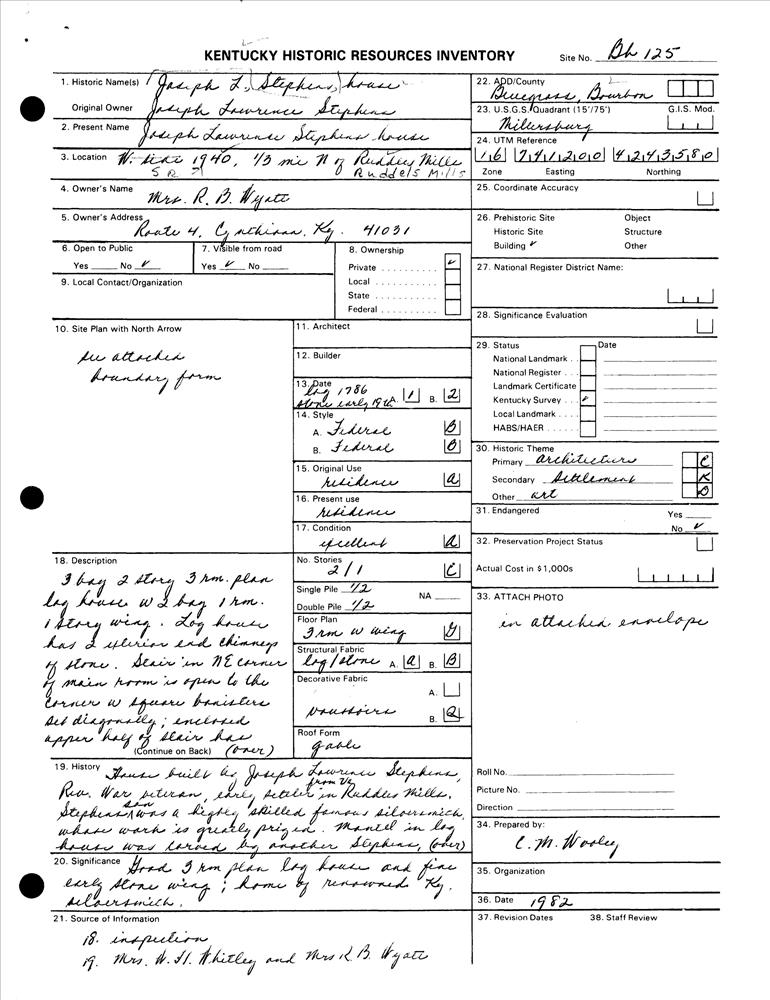 KENTUCKY HISTORIC RESOURCES INVENTORY
Site No. Bh 125
1. Historic Name(s) Joseph L. Stephens house
Original Owner Joseph Lawrence Stephens
2. Present Name Joseph Lawrence Stephens house
3. Location W. side 1940, 1/3 mi N of Ruddles Mills
SR Ruddels Mills
4. Owner's Name Mrs. R. B. Wyatt
5. Owner's Address Route 4, Cynthiana, Ky. 41031
6. Open to Public
Yes No ✓
7. Visible from road
Yes ✓ No
8. Ownership
Private ✓
Local
State
Federal
9. Local Contact/Organization
10. Site Plan with North Arrow
see attached
boundary form
11. Architect
12. Builder
13. Date
log 1786
stone early 19th A. 1 B. 2
14. Style
A. Federal B
B. Federal B
15. Original Use
residence a
16. Present use
residence
17. Condition
excellent a
18. Description
3 bay 2 story 3 rm. plan
log house w 2 bay 1 rm.
1 story wing. Log house
has 2 exterior end chimneys
of stone. Stair in NE corner
of main room is open to the
corner w square banisters
set diagonally; enclosed
upper half of stair has
(Continue on Back) (over)
No. Stories
2/1 C
Single Pile 1/2 NA
Double Pile 1/2
Floor Plan
3 rm w wing
Structural Fabric
log/stone A. a B. B
Decorative Fabric
A.
voussoirs B. 2
Roof Form
gable
19. History House built by Joseph Lawrence Stephens,
from Va
Rev. War veteran, early settler in Ruddles Mills.
son
Stephens was a highly skilled famous silversmith,
whose work is greatly prized. Mantel in log
house was carved by another Stephens, (over)
20. Significance Good 3 rm plan log house and fine
early stone wing; home of renowned Ky.
silversmith.
21. Source of Information
18. inspection
19. Mrs. W. H. Whitley and Mrs R. B. Wyatt
22. ADD/County
Bluegrass, Bourbon
23. U.S.G.S. Quadrant (15'/75') G.I.S. Mod.
Millersburg
24. UTM Reference
16 741200 4243580
Zone Easting Northing
25. Coordinate Accuracy
26. Prehistoric Site Object
Historic Site Structure
Building ✓ Other
27. National Register District Name:
28. Significance Evaluation
29. Status Date
National Landmark
National Register
Landmark Certificate
Kentucky Survey ✓
Local Landmark
HABS/HAER
30. Historic Theme
Primary architecture C
Secondary settlement K
Other art D
31. Endangered Yes
No ✓
32. Preservation Project Status
Actual Cost in $1,000s
33. ATTACH PHOTO
in attached envelope
Roll No.
Picture No.
Direction
34. Prepared by:
C. M. Wooley
35. Organization
36. Date 1982
37. Revision Dates 38. Staff Review